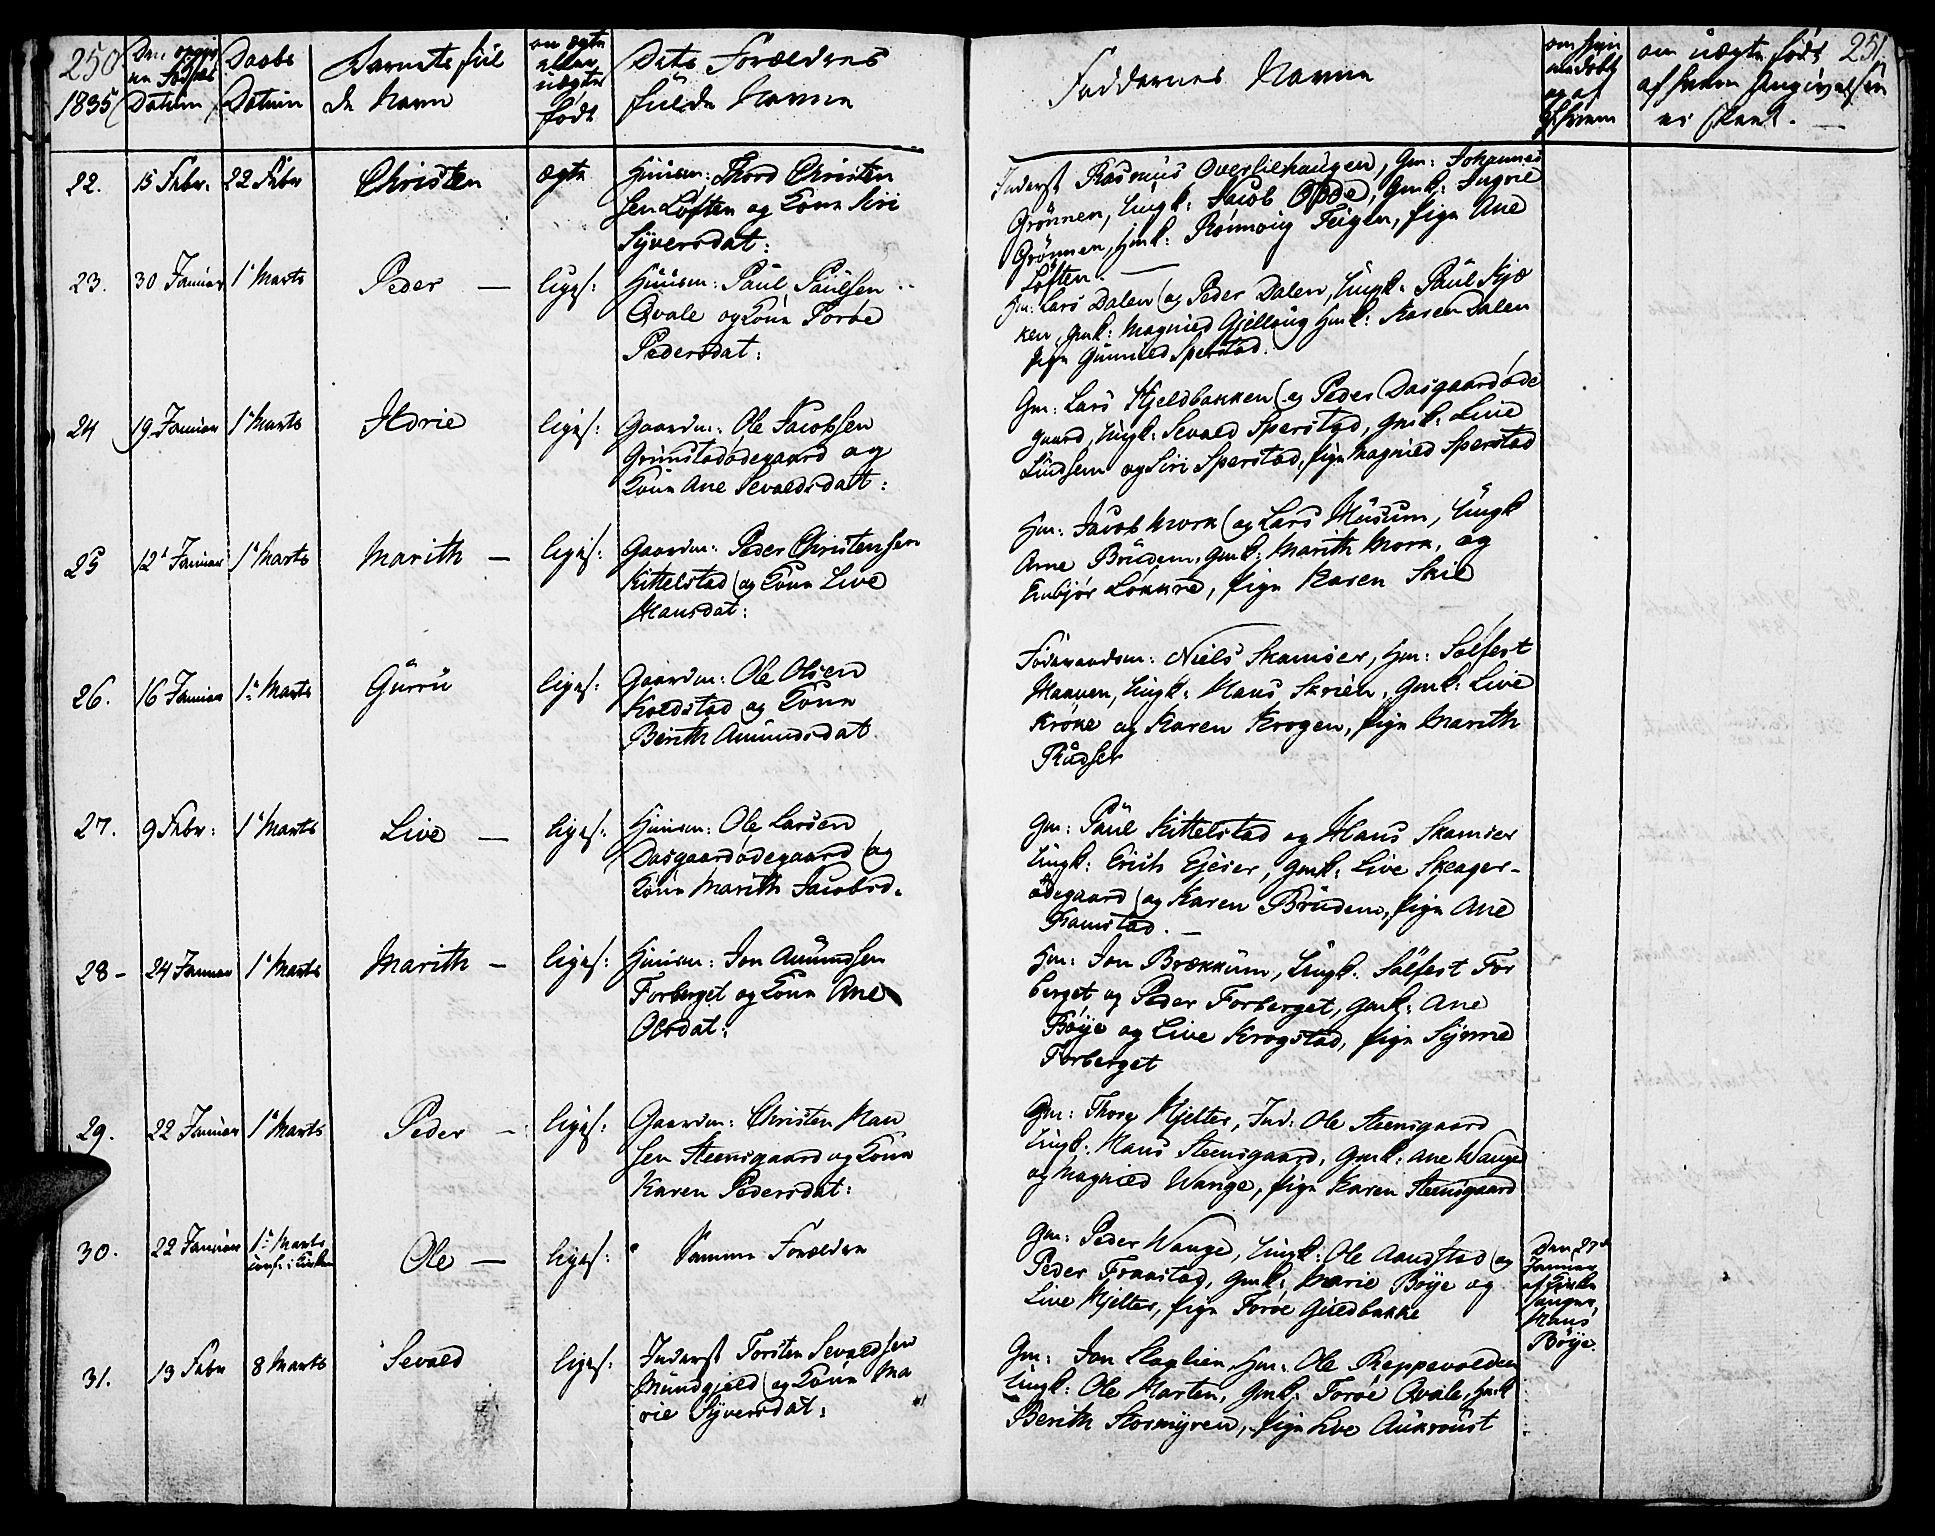 250
1835
Daabs
Datum
Barnets ful
de Navn
om ægte
eller
uægte
født
Dets Forældres
fulde Navne
Faddernes Navne
251
om uægte født
22. 15 Febr: 22 Febr Christen ægte
Huusm: Thord Christen
sen Løften og Kone Siri
Syversdat:
Inderst Rasmus Overliehaugen, Gm: Johannes
Grønnen, Ungk: Jacob Odde, Gmk: Ingrie
Grønnen, Hmk: Rønnoug Teigen, Pige Ane
Løften.
23. 30 Januar 1 Marts Peder — liges:
Huusm: Paul Paulsen
Qvale og Kone Torøe
Pedersdat:
Hm: Lars Dalen og Peder Dalen, Ungk: Paul Kjø
ken, Gmk: Magnied Gjelloug Hmk: Karen Dalen
Pige Gunnild Sperstad.
24 19 Januar 1 Marts Ildrie liges:
Gaardm: Ole Jacobsen
Grimstadødegaard og
Kone Ane Sevaldsdatt:
Gm: Lars Kjeldbakken og Peder Dasgaardøde
gaard, Ungk: Sevald Sperstad, Gmk: Live
Lindsem og Siri Sperstad, Pige Magnied Sperstad
25 12 Januar 1 Marts Marith — liges:
Gaardm: Peder Christensen
Kittelstad og Kone Live
Hansdat:
Hm: Jacob Mork og Lars Musum, Ungk
Arne Bruden, Gmk: Marith Mork, og
Embjør Løkkre, Pige Karen Skie
26. 16 Januar 1 Marts Gurru liges:
Gaardm: Ole Olsen
Koldstad og Kone
Berith Amundsdat
Niels Skamser, Hm: Solfest
Haaven, Ungk: Hans Skrien, Gmk: Live
Krøke og Karen Krogen, Pige Marith
Rudser
27. 9 Febr: 1 Marts Live — liges:
Huusm: Ole Larsen
Dasgaardødegaard og
Kone Marith Jacobsd.
Gm: Paul Kittelstad og Hans Skamser
Ungk: Erich Gjeser, Gmk: Live Skeager-
ødegaard og Karen Bruden, Pige Ane
Framstad. —
28 — 24 Januar 1 Marts Marith — ligs:
Huusm: Jon Amundsen
Forberget og Kone Ane
Olsdat:
Hm: Jon Brækkum, Ungk. Solfest For
berget og Peder Forberget, Gmk: Ane
Bøye og Live Krogstad, Pige Synne
Forberget
29. 22 Januar 1 Marts Peder — ligs:
Gaardm: Christen Han
sen Steensgaard og Kone
Karen Pedersdat:
Gm: Thore Hjelter, Ind: Ole Steensgaard
Ungk: Hans Steensgaard, Gmk: Ane Wange
og Magnied Wange, Pige Karen Steensgaard
30. 22 Januar 1 Marts Ole — ligs: Samme Forældre
Gm: Peder Wange, Ungk: Ole Aandstad og
Peder Fraastad, Gmk: Marie Bøye og
Live Hjelter, Pige Torøe Gieldbakke
Den 27
Januar
af Kirke
sanger
Hans
Bøye.
31. 13 Febr 8 Marts Sevald ligs:
Inderst Torsten Sevaldsen
Mundgjeld og Kone Ma
rie Syversdat:
Gm: Jon Slaglien, Hm: Ole Reppevolden
Ungk: Ole Harten, Gmk: Torøe Qvale, Hmk
Berith Stormyren, Pige Live Aukroust